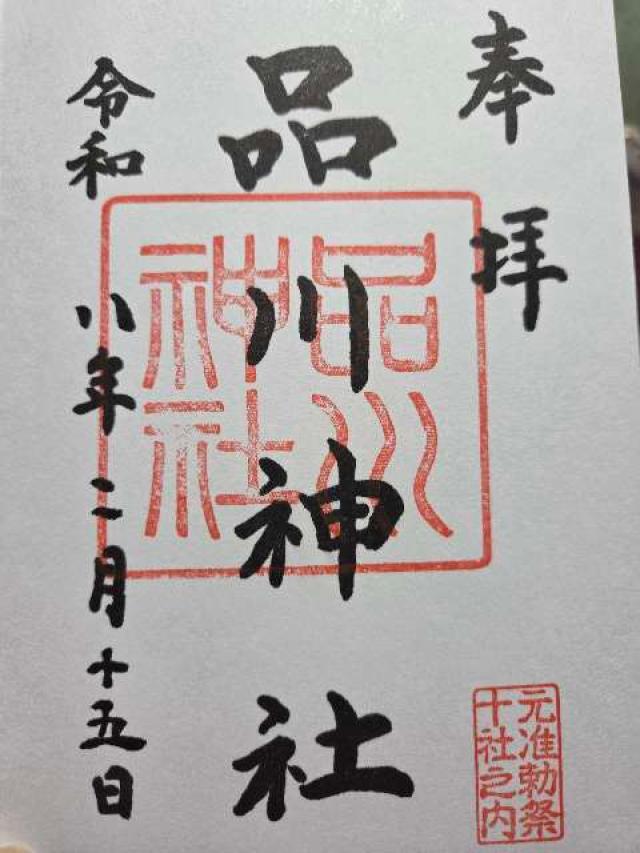 奉拝
品川神社
令和八年二月十五日
品川
神社
元准勅祭
十社之内